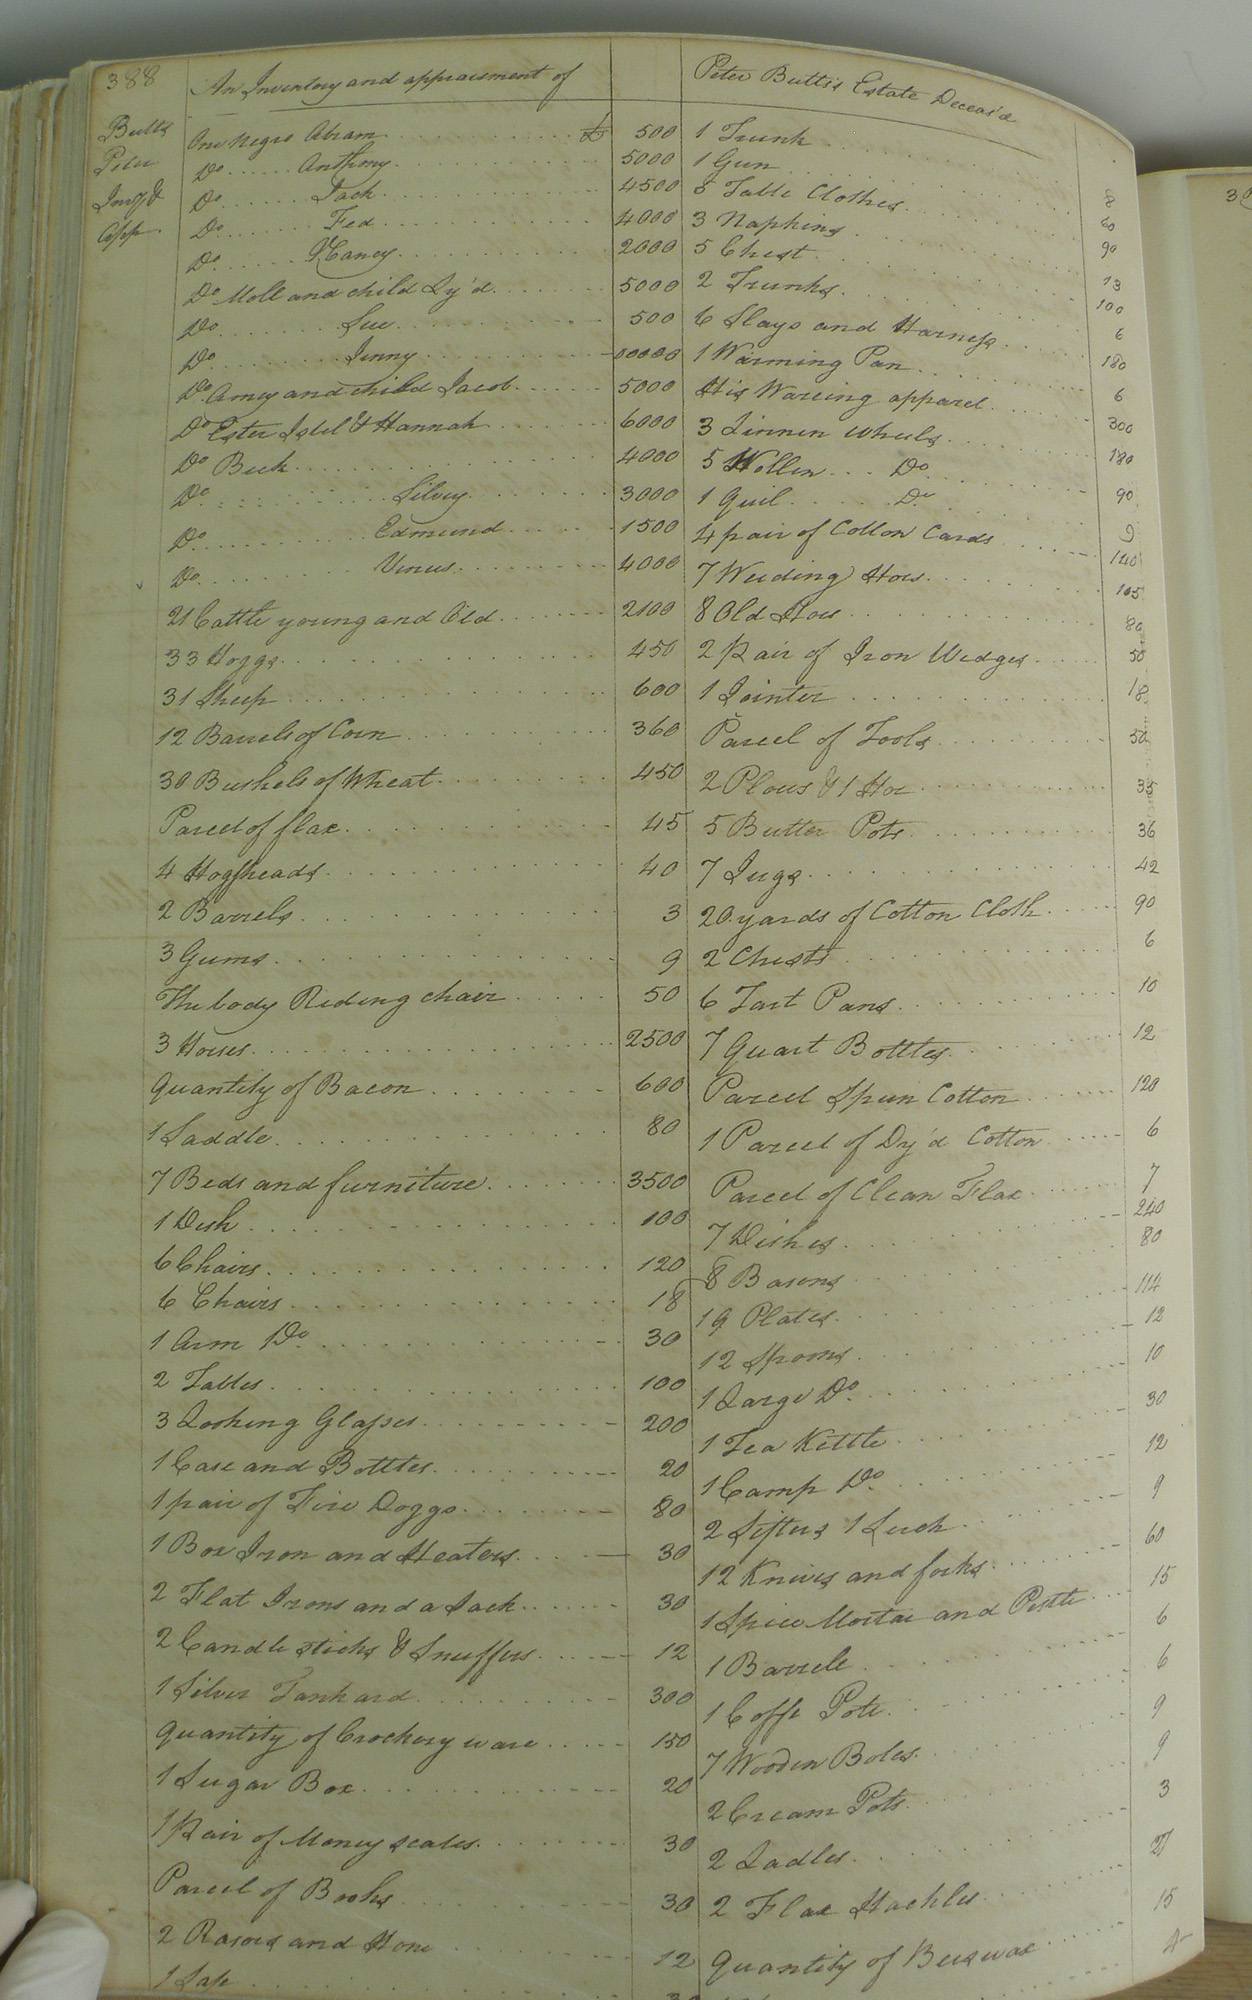 388
An Inventory and appraisment of
Peter Butts's Estate Deceas'd
Butts
Peter
Invy &
App.
One Negro Abram £ 500
Do Anthony 5000
Do Jack 4500
Do Fed 4000
Do Nancy 2000
Do Moll and child Ly'd 5000
Do Sue 500
Do Jinny 00000
Do Amey and child Jacob 5000
Do Ester Isbel & Hannah 6000
Do Beck 4000
Do Silvey 3000
Do Edmund 1500
Do Venus 4000
21 Cattle young and Old 2100
33 Hoggs 450
31 Sheep 600
12 Barrels of Corn 360
30 Bushels of Wheat 450
Parcel of flax 45
4 Hogsheads 40
2 Barrels 3
3 Gums 9
The body Riding chair 50
3 Horses 2500
Quantity of Bacon 600
1 Saddle 80
7 Beds and furniture 3500
1 Desk 100
6 Chairs 120
6 Chairs 18
1 Arm Do 30
2 Tables 100
3 Looking Glasses 200
1 Case and Bottles 20
1 pair of Fire Doggs 80
1 Box Iron and Heaters 30
2 Flat Irons and a Jack 30
2 Candlesticks & Snuffers 12
1 Silver Tankard 300
Quantity of Crockery ware 150
1 Sugar Box 20
1 Pair of Money scales 30
Parcel of Books 30
2 Rasors and Hone 12
1 Trunk 8
1 Gun 60
5 Table Clothes 90
3 Napkins 13
5 Chest 100
2 Trunks 6
6 Slays and Harness 180
1 Warming Pan 6
His Wareing apparel 300
3 Linnen Wheels 180
5 Wollen Do 90
1 Quil Do 9
4 pair of Cotton Cards 140
7 Weeding Hoes 105
8 Old Hoes 80
2 Pair of Iron Wedges 50
1 Jointer 18
Parcel of Tools 50
2 Plows & 1 Hoe 35
5 Butter Pots 36
7 Jugs 42
20 yards of Cotton Cloth 90
2 Chests 6
6 Tart Pans 10
7 Quart Bottles 12
Parcel Spun Cotton 120
1 Parcel of Dy'd Cotton 6
Parcel of Clean Flax 7
7 Dishes 240
8 Basons 80
19 Plates 114
12 Spoons 12
1 Large Do 10
1 Tea Kettle 30
1 Camp Do 12
2 Sifters 1 Serch 9
12 Knives and forks 60
1 Spice Mortar and Pestle 15
1 Barrele 6
1 Coffe Pote 6
7 Wooden Boles 9
2 Cream Pots 9
2 Ladles 3
2 Flax Hackles 27
Quantity of Beeswax 15